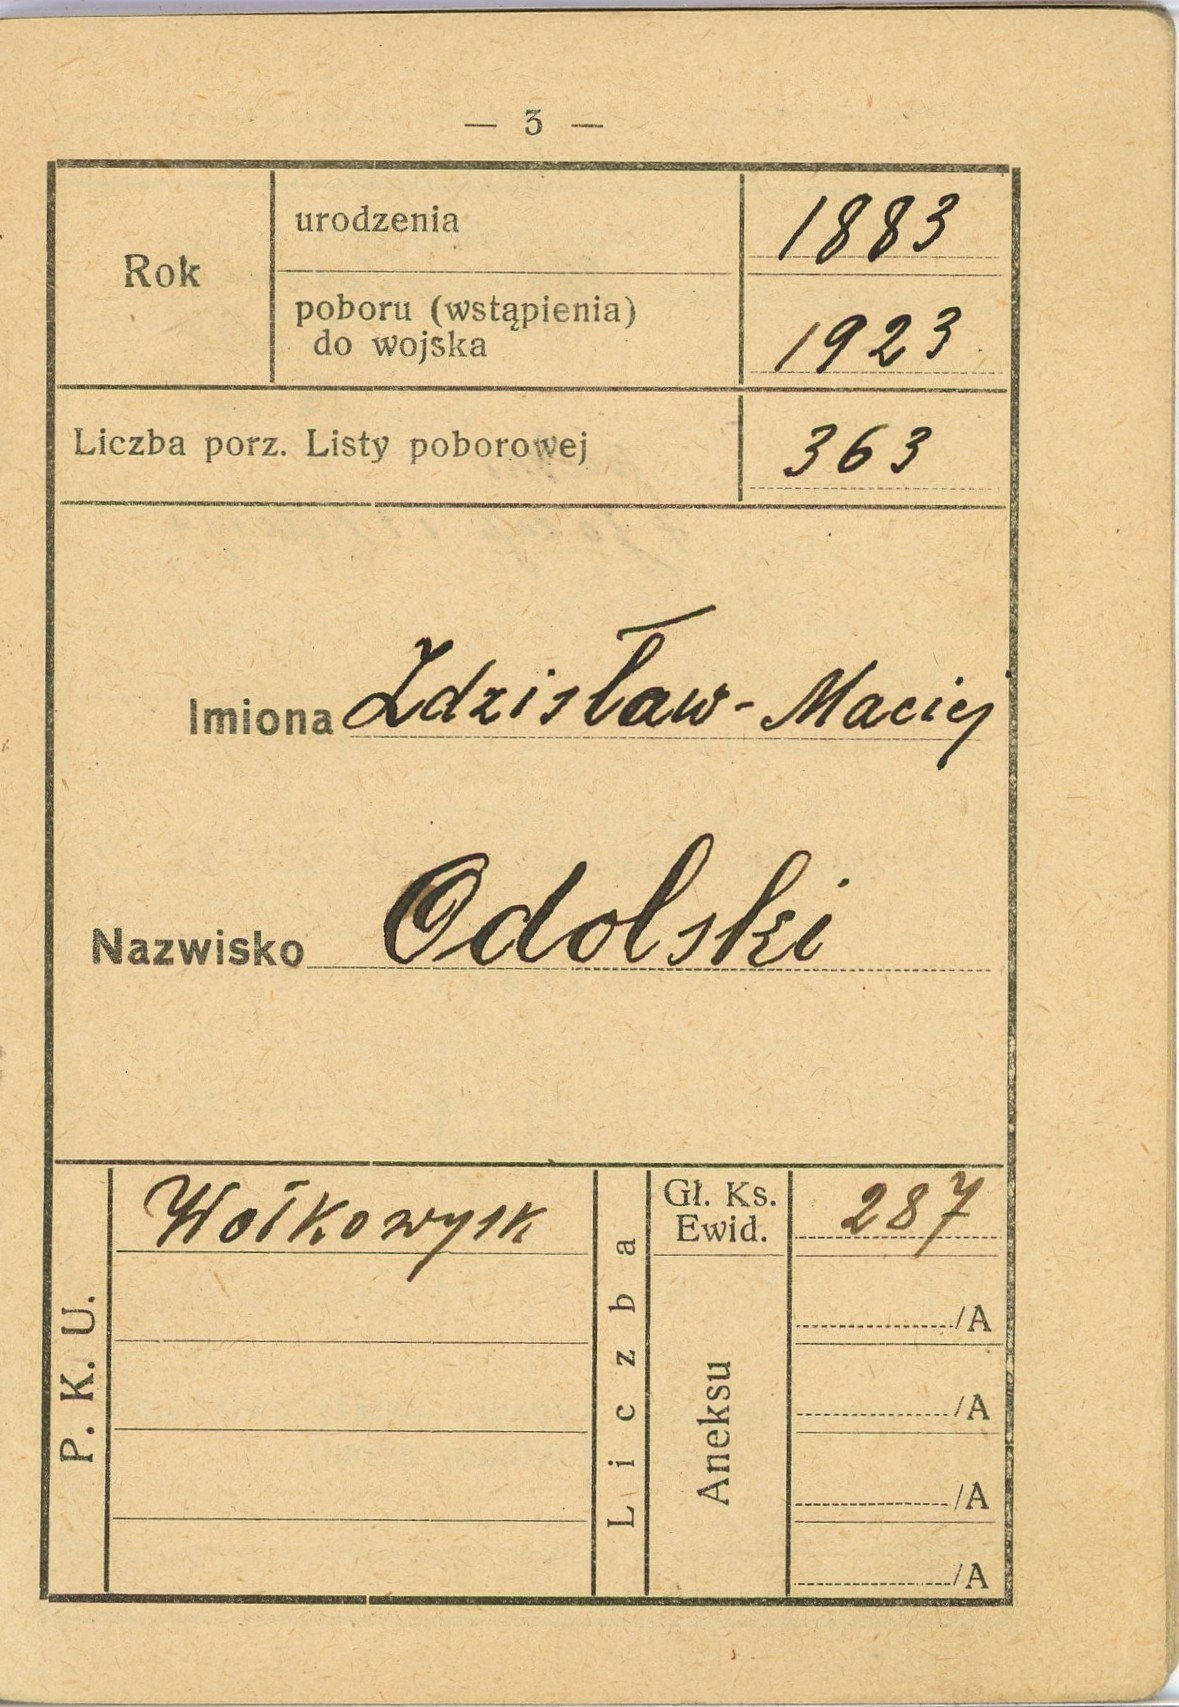 — 3 —
Rok
urodzenia 1883
poboru (wstąpienia)
do wojska 1923
Liczba porz. Listy poborowej 363
Imiona Zdzisław-Maciej
Nazwisko Odolski
P. K. U.
Wołkowysk
Liczba
Gł. Ks.
Ewid. 287
Aneksu
/A
/A
/A
/A